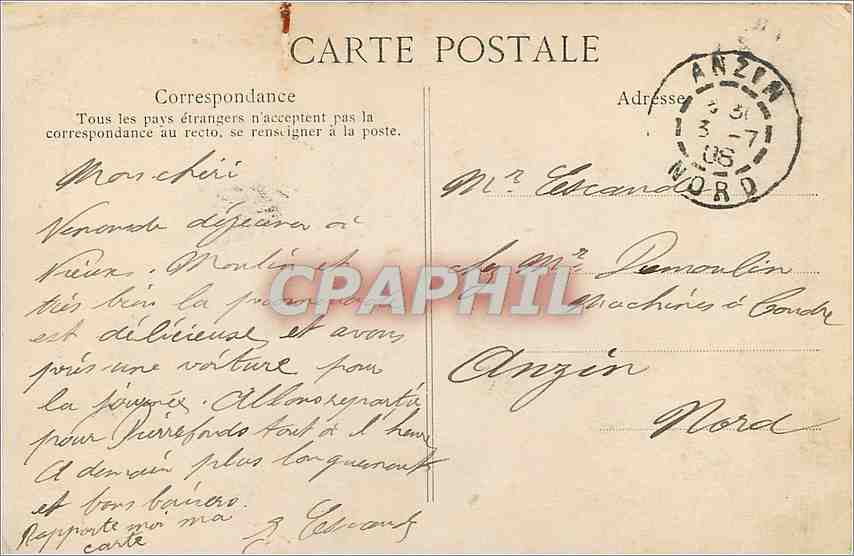 CARTE POSTALE
Correspondance
Tous les pays étrangers n'acceptent pas la
correspondance au recto, se renseigner à la poste.
Adresse
ANZIN
3 30
3 -7
08
NORD
Mon chéri
Venons de déjeuner à
Vieux. Moulin et
très bien la promenade
est délicieuse et avons
pris une voiture pour
la journée. Allons repartir
pour Pierrefonds tout à l heure
A demain plus longuement
et bons baisers.
Rapporte moi ma
carte
Escande
Mr Escande
chez Mr Dumoulin
Machines à Coudre
Anzin
Nord
CPAPHIL